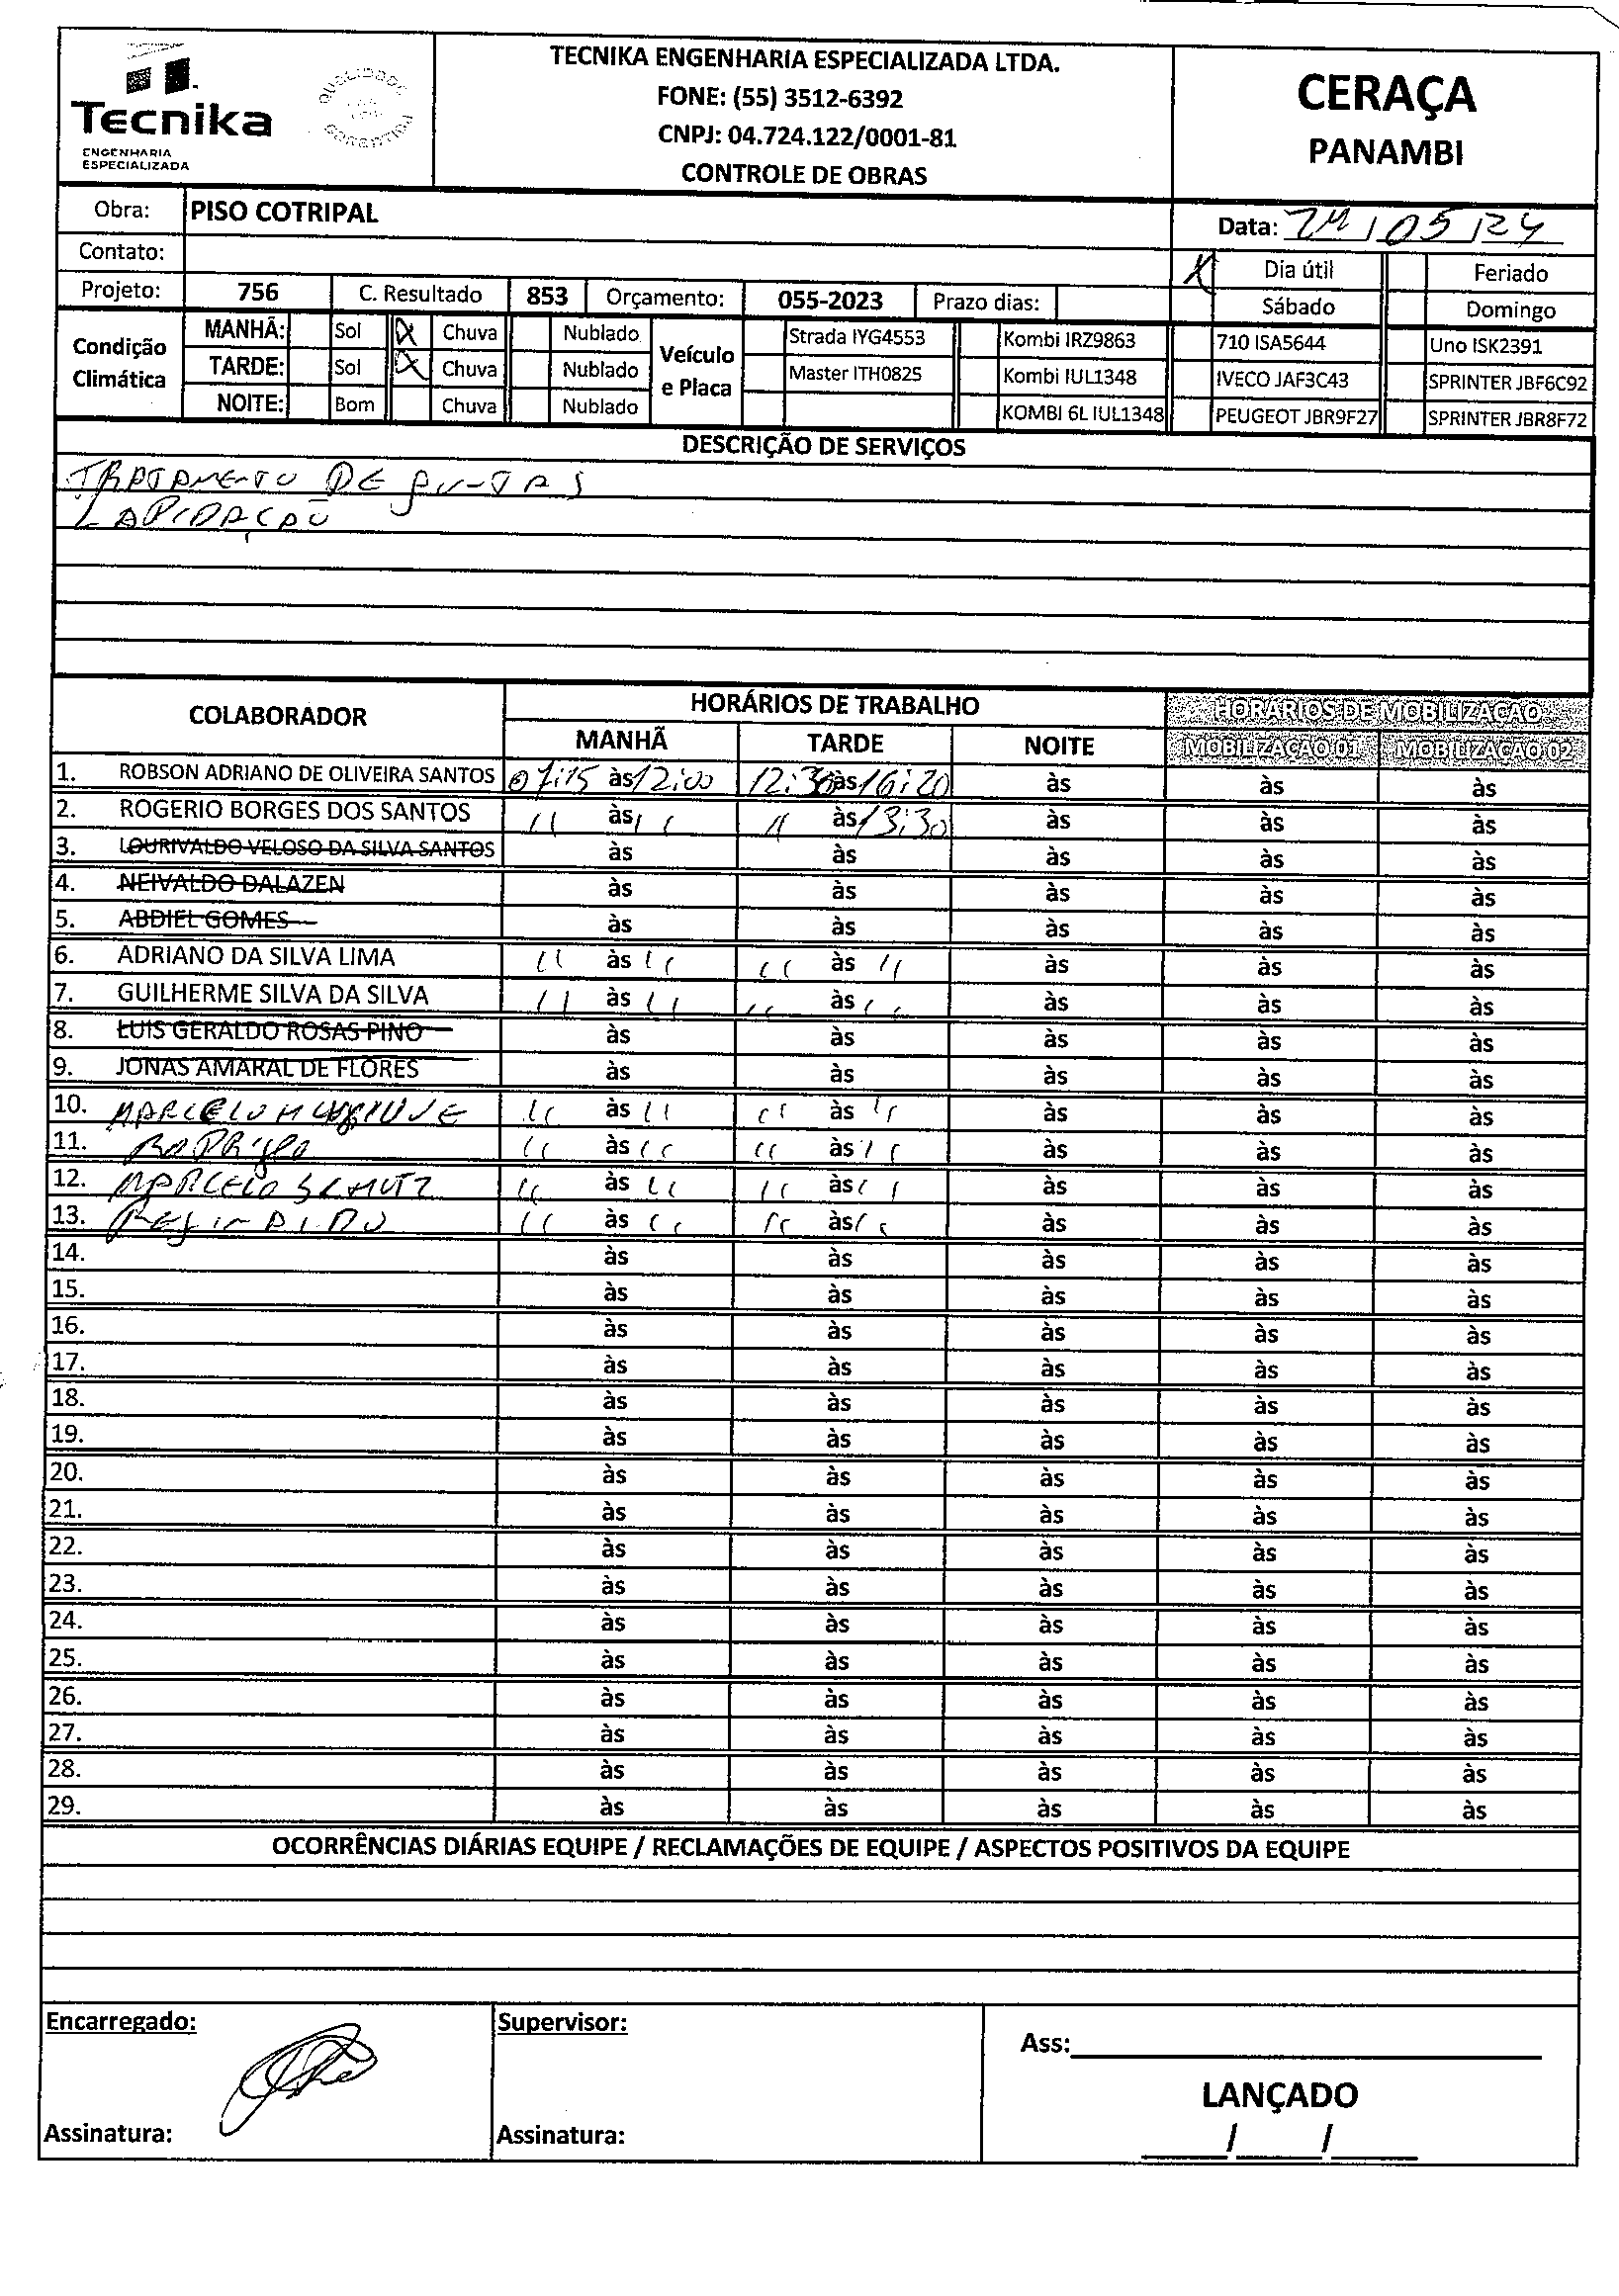 Tecnika
ENGENHARIA
ESPECIALIZADA
QUALIDADE
GARANTIDA
TECNIKA ENGENHARIA ESPECIALIZADA LTDA.
FONE: (55) 3512-6392
CNPJ: 04.724.122/0001-81
CONTROLE DE OBRAS
CERAÇA
PANAMBI
Obra: PISO COTRIPAL
Data: 24/05/24
Contato:
X Dia útil Feriado
Projeto: 756 C. Resultado 853 Orçamento: 055-2023 Prazo dias:
Sábado Domingo
Condição Climática
MANHÃ: Sol X Chuva Nublado
TARDE: Sol X Chuva Nublado
NOITE: Bom Chuva Nublado
Veículo e Placa
Strada IYG4553 Kombi IRZ9863 710 ISA5644 Uno ISK2391
Master ITH0825 Kombi IUL1348 IVECO JAF3C43 SPRINTER JBF6C92
KOMBI 6L IUL1348 PEUGEOT JBR9F27 SPRINTER JBR8F72
DESCRIÇÃO DE SERVIÇOS
TRATAMENTO DE JUNTAS
LAPIDAÇÃO
COLABORADOR HORÁRIOS DE TRABALHO HORÁRIOS DE MOBILIZAÇÃO
MANHÃ TARDE NOITE MOBILIZAÇÃO 01 MOBILIZAÇÃO 02
1. ROBSON ADRIANO DE OLIVEIRA SANTOS 07:15 às 12:00 12:30 às 16:20 às às às
2. ROGERIO BORGES DOS SANTOS " às " " às 13:30 às às às
3. LOURIVALDO VELOSO DA SILVA SANTOS às às às às às
4. NEIVALDO DALAZEN às às às às às
5. ABDIEL GOMES às às às às às
6. ADRIANO DA SILVA LIMA " às " " às " às às às
7. GUILHERME SILVA DA SILVA " às " " às " às às às
8. LUIS GERALDO ROSAS PINO às às às às às
9. JONAS AMARAL DE FLORES às às às às às
10. MARCELO " às " " às " às às às
11. RODRIGO " às " " às " às às às
12. MARCELO SCHUTZ " às " " às " às às às
13. REGINALDO " às " " às " às às às
14. às às às às às
15. às às às às às
16. às às às às às
17. às às às às às
18. às às às às às
19. às às às às às
20. às às às às às
21. às às às às às
22. às às às às às
23. às às às às às
24. às às às às às
25. às às às às às
26. às às às às às
27. às às às às às
28. às às às às às
29. às às às às às
OCORRÊNCIAS DIÁRIAS EQUIPE / RECLAMAÇÕES DE EQUIPE / ASPECTOS POSITIVOS DA EQUIPE
Encarregado: Supervisor:
Ass:
LANÇADO
Assinatura: Assinatura:
/ /